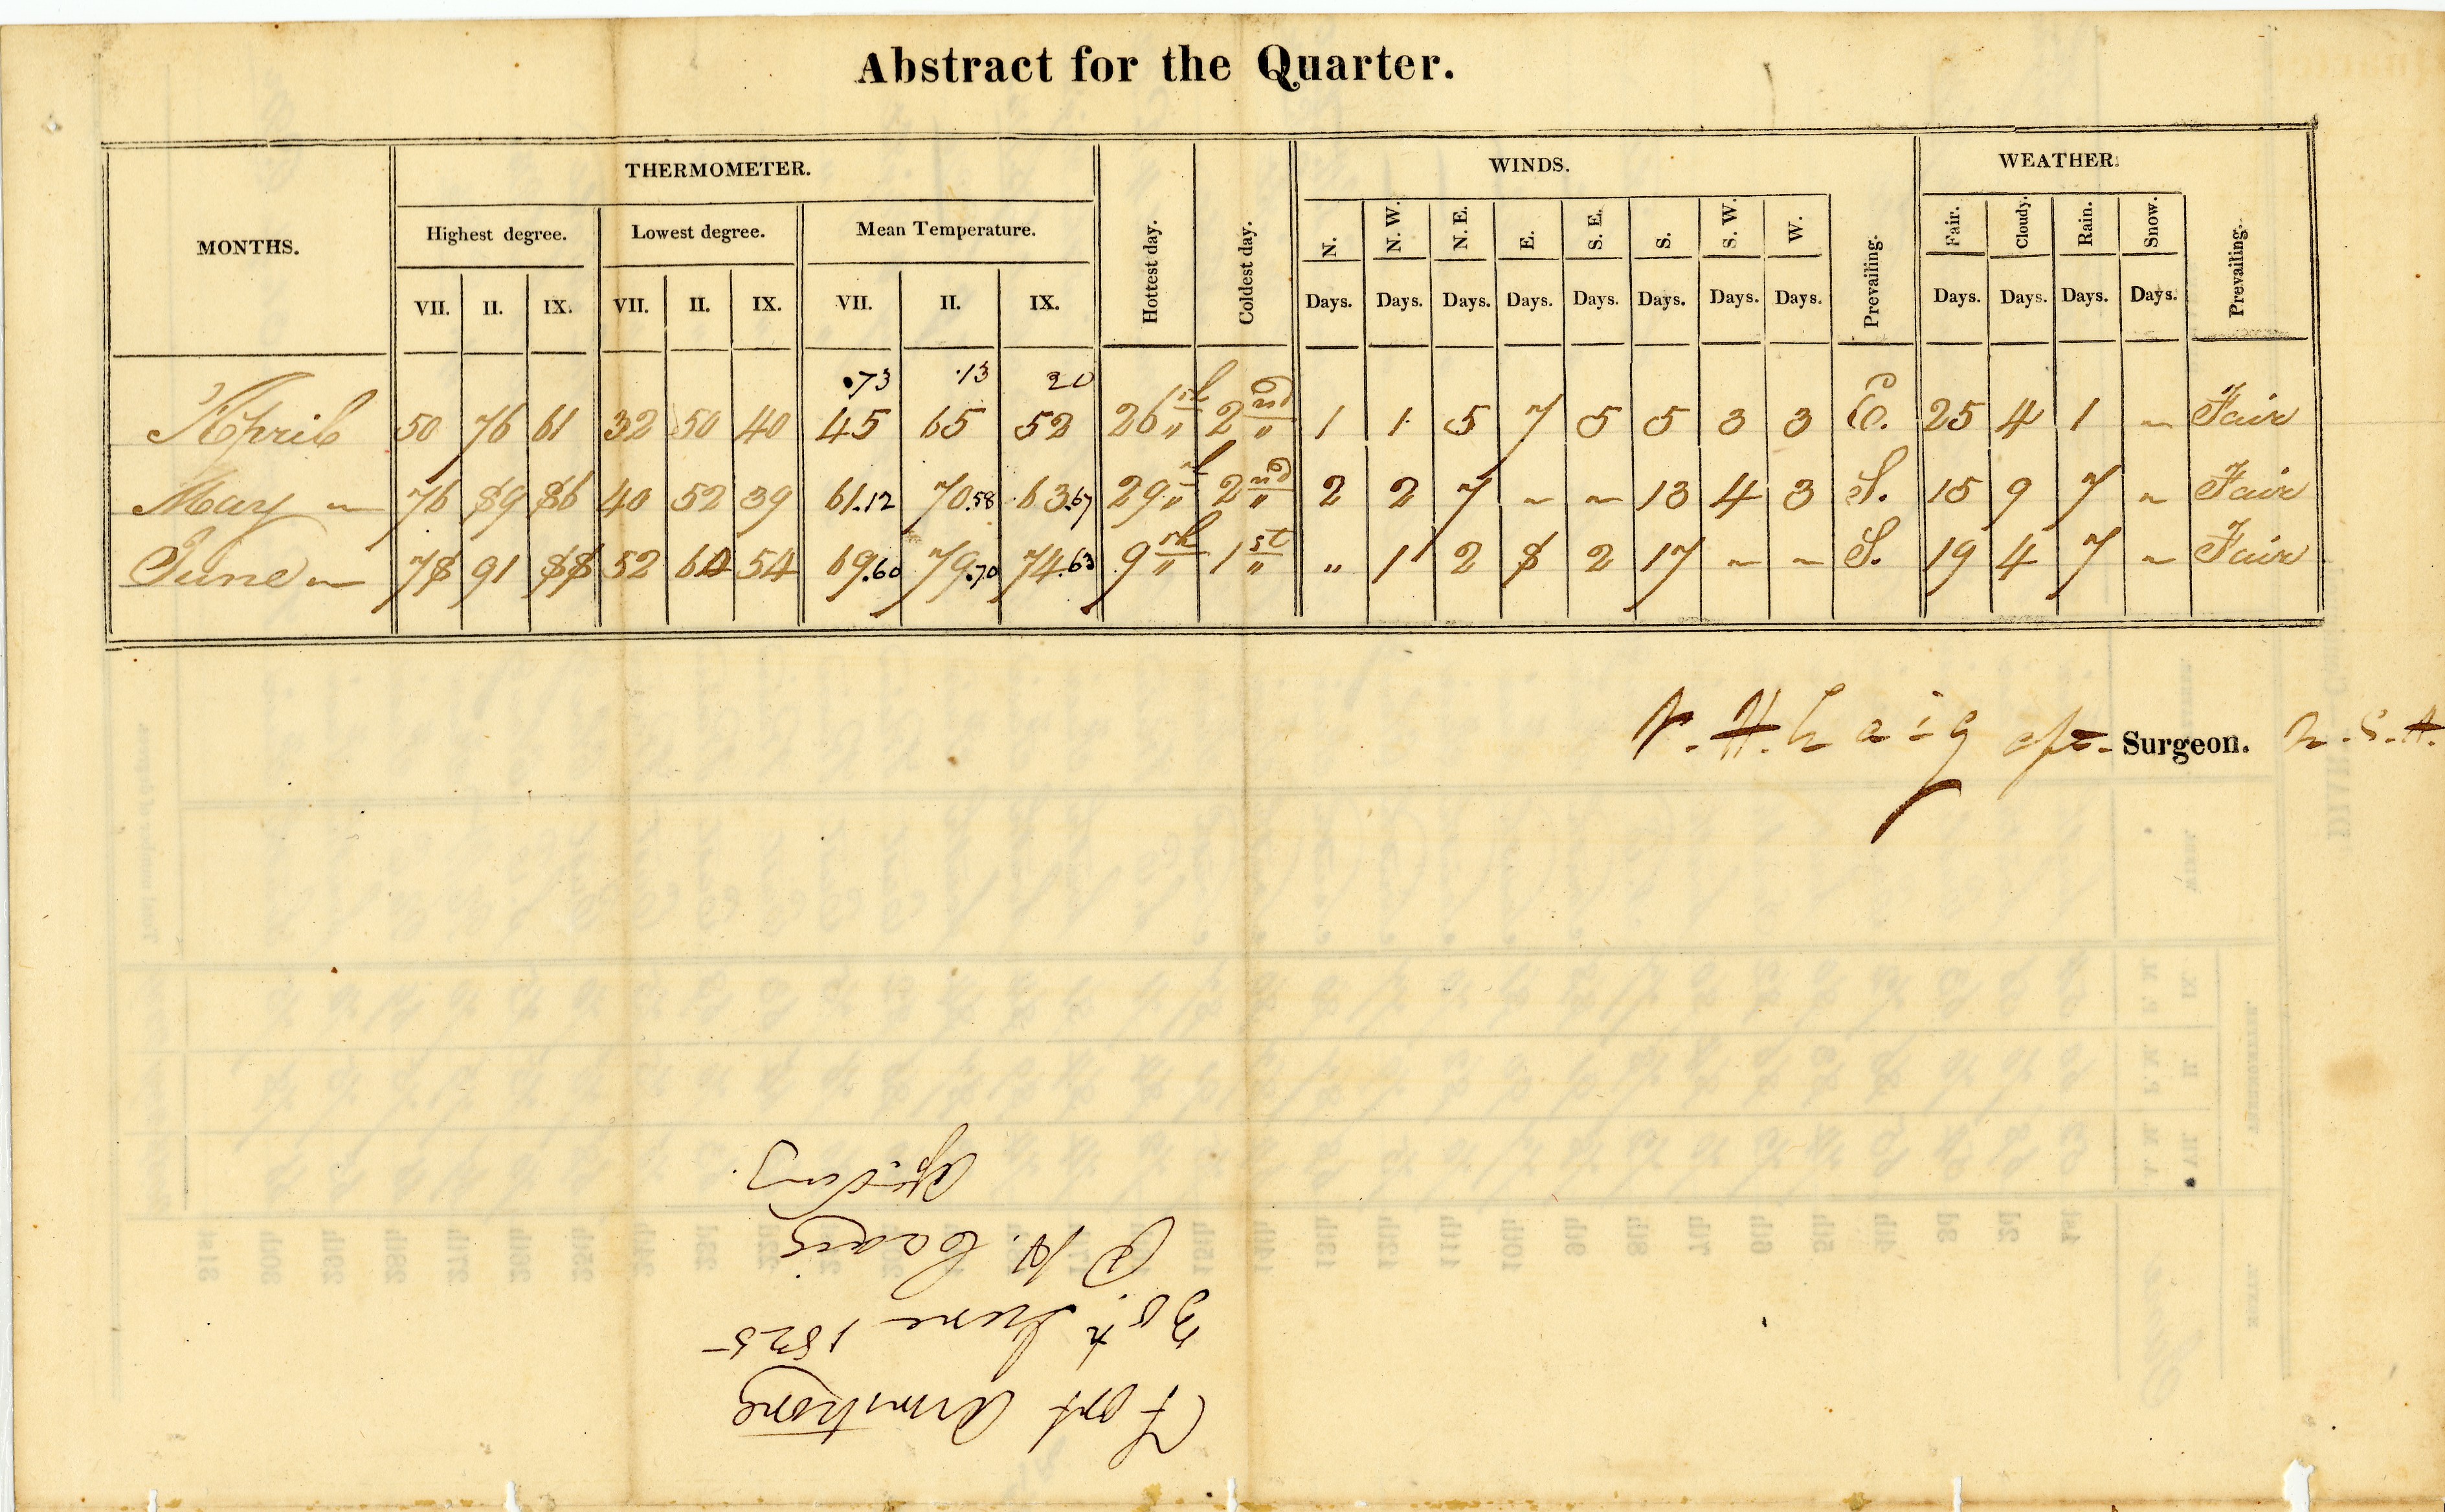 Abstract for the Quarter.
MONTHS. THERMOMETER. Hottest day. Coldest day. WINDS. WEATHER.
Highest degree. Lowest degree. Mean Temperature. N. N. W. N. E. E. S. E. S. S. W. W. Prevailing. Fair. Cloudy. Rain. Snow. Prevailing.
VII. II. IX. VII. II. IX. VII. II. IX. Days. Days. Days. Days. Days. Days. Days. Days. Days. Days. Days. Days.
.73 .13 20
April 50 76 61 32 50 40 45 65 52 26th 2nd 1 1 5 7 5 5 3 3 E. 25 4 1 ~ Fair
May ~ 76 89 86 40 52 39 61.12 70.58 63.67 29th 2nd 2 2 7 ~ ~ 13 4 3 S. 15 9 7 ~ Fair
June ~ 78 91 88 52 60 54 69.60 79.70 74.63 9th 1st " 1 2 8 2 17 ~ ~ S. 19 4 7 ~ Fair
Surgeon.
Fort Armstrong
30th June 1825
Craig